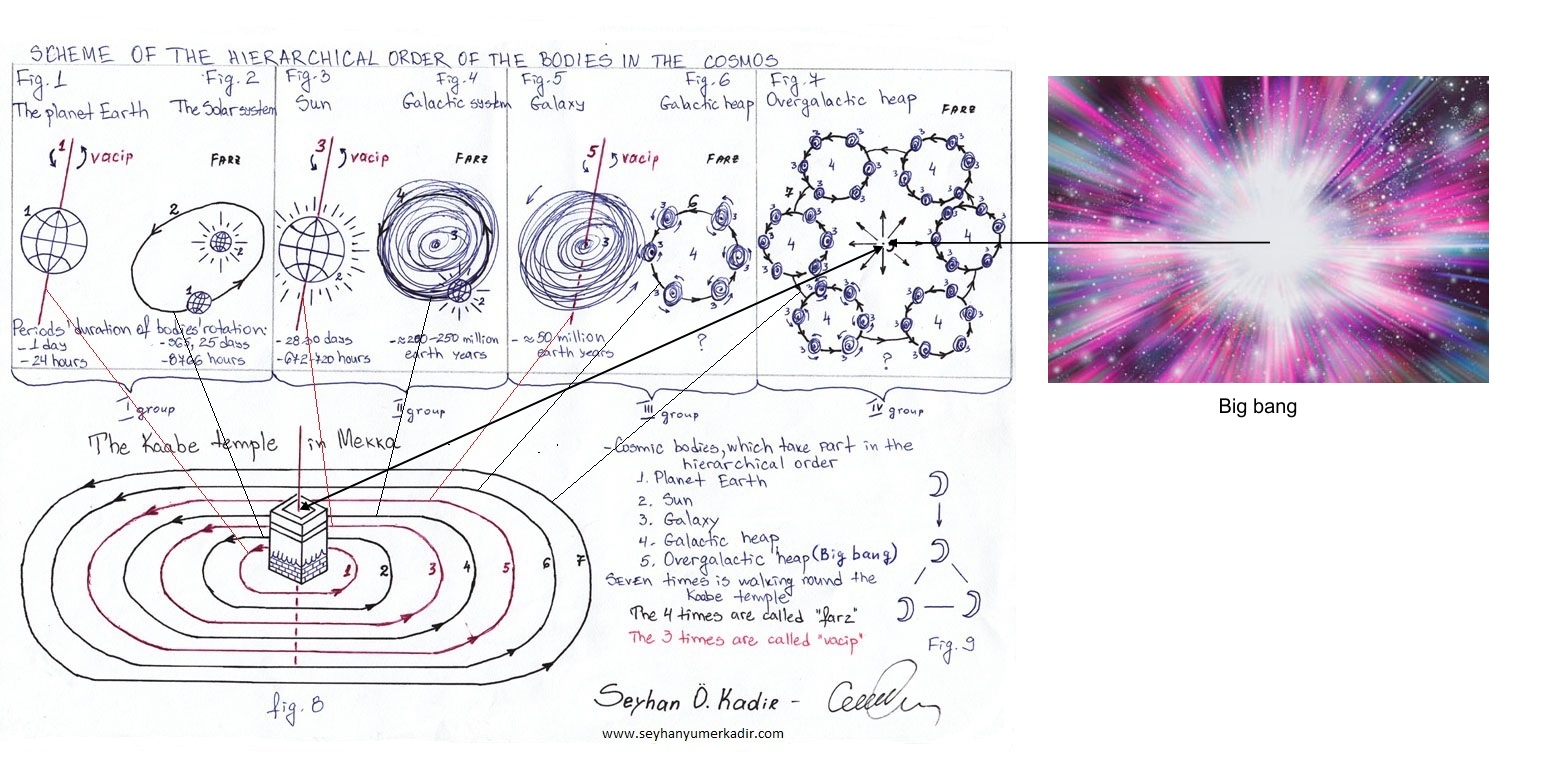 SCHEME OF THE HIERARCHICAL ORDER OF THE BODIES IN THE COSMOS
Fig.1
The planet Earth
1
vacip
1
Fig.2
The Solar system
FARZ
2
2
1
Periods' duration of bodies' rotation:
- 1 day
- 24 hours
- 365, 25 days
- 8766 hours
I group
Fig.3
Sun
3
vacip
2
- 28-30 days
- 672-720 hours
Fig.4
Galactic system
FARZ
4
3
2
- ≈200-250 million
earth years
II group
Fig.5
Galaxy
5
vacip
3
- ≈50 million
earth years
Fig.6
Galactic heap
FARZ
6
3 3
3 4 3
3 3
?
III group
Fig.7
Overgalactic heap
FARZ
7
3 3 3 3
3 4 3 3 4 3
3 3 3 3
3 3 3 3
3 4 3 5 3 4 3
3 3 3 3
3 3 3 3
3 4 3 3 4 3
3 3 3 3
?
IV group
Big bang
The Kaabe temple in Mekka
1 2 3 4 5 6 7
fig. 8
- Cosmic bodies, which take part in the
hierarchical order
1. Planet Earth
2. Sun
3. Galaxy
4. Galactic heap
5. Overgalactic heap (Big bang)
Seven times is walking round the
Kaabe temple
The 4 times are called "farz"
The 3 times are called "vacip"
Fig.9
Seyhan Ö. Kadir -
www.seyhanyumerkadir.com